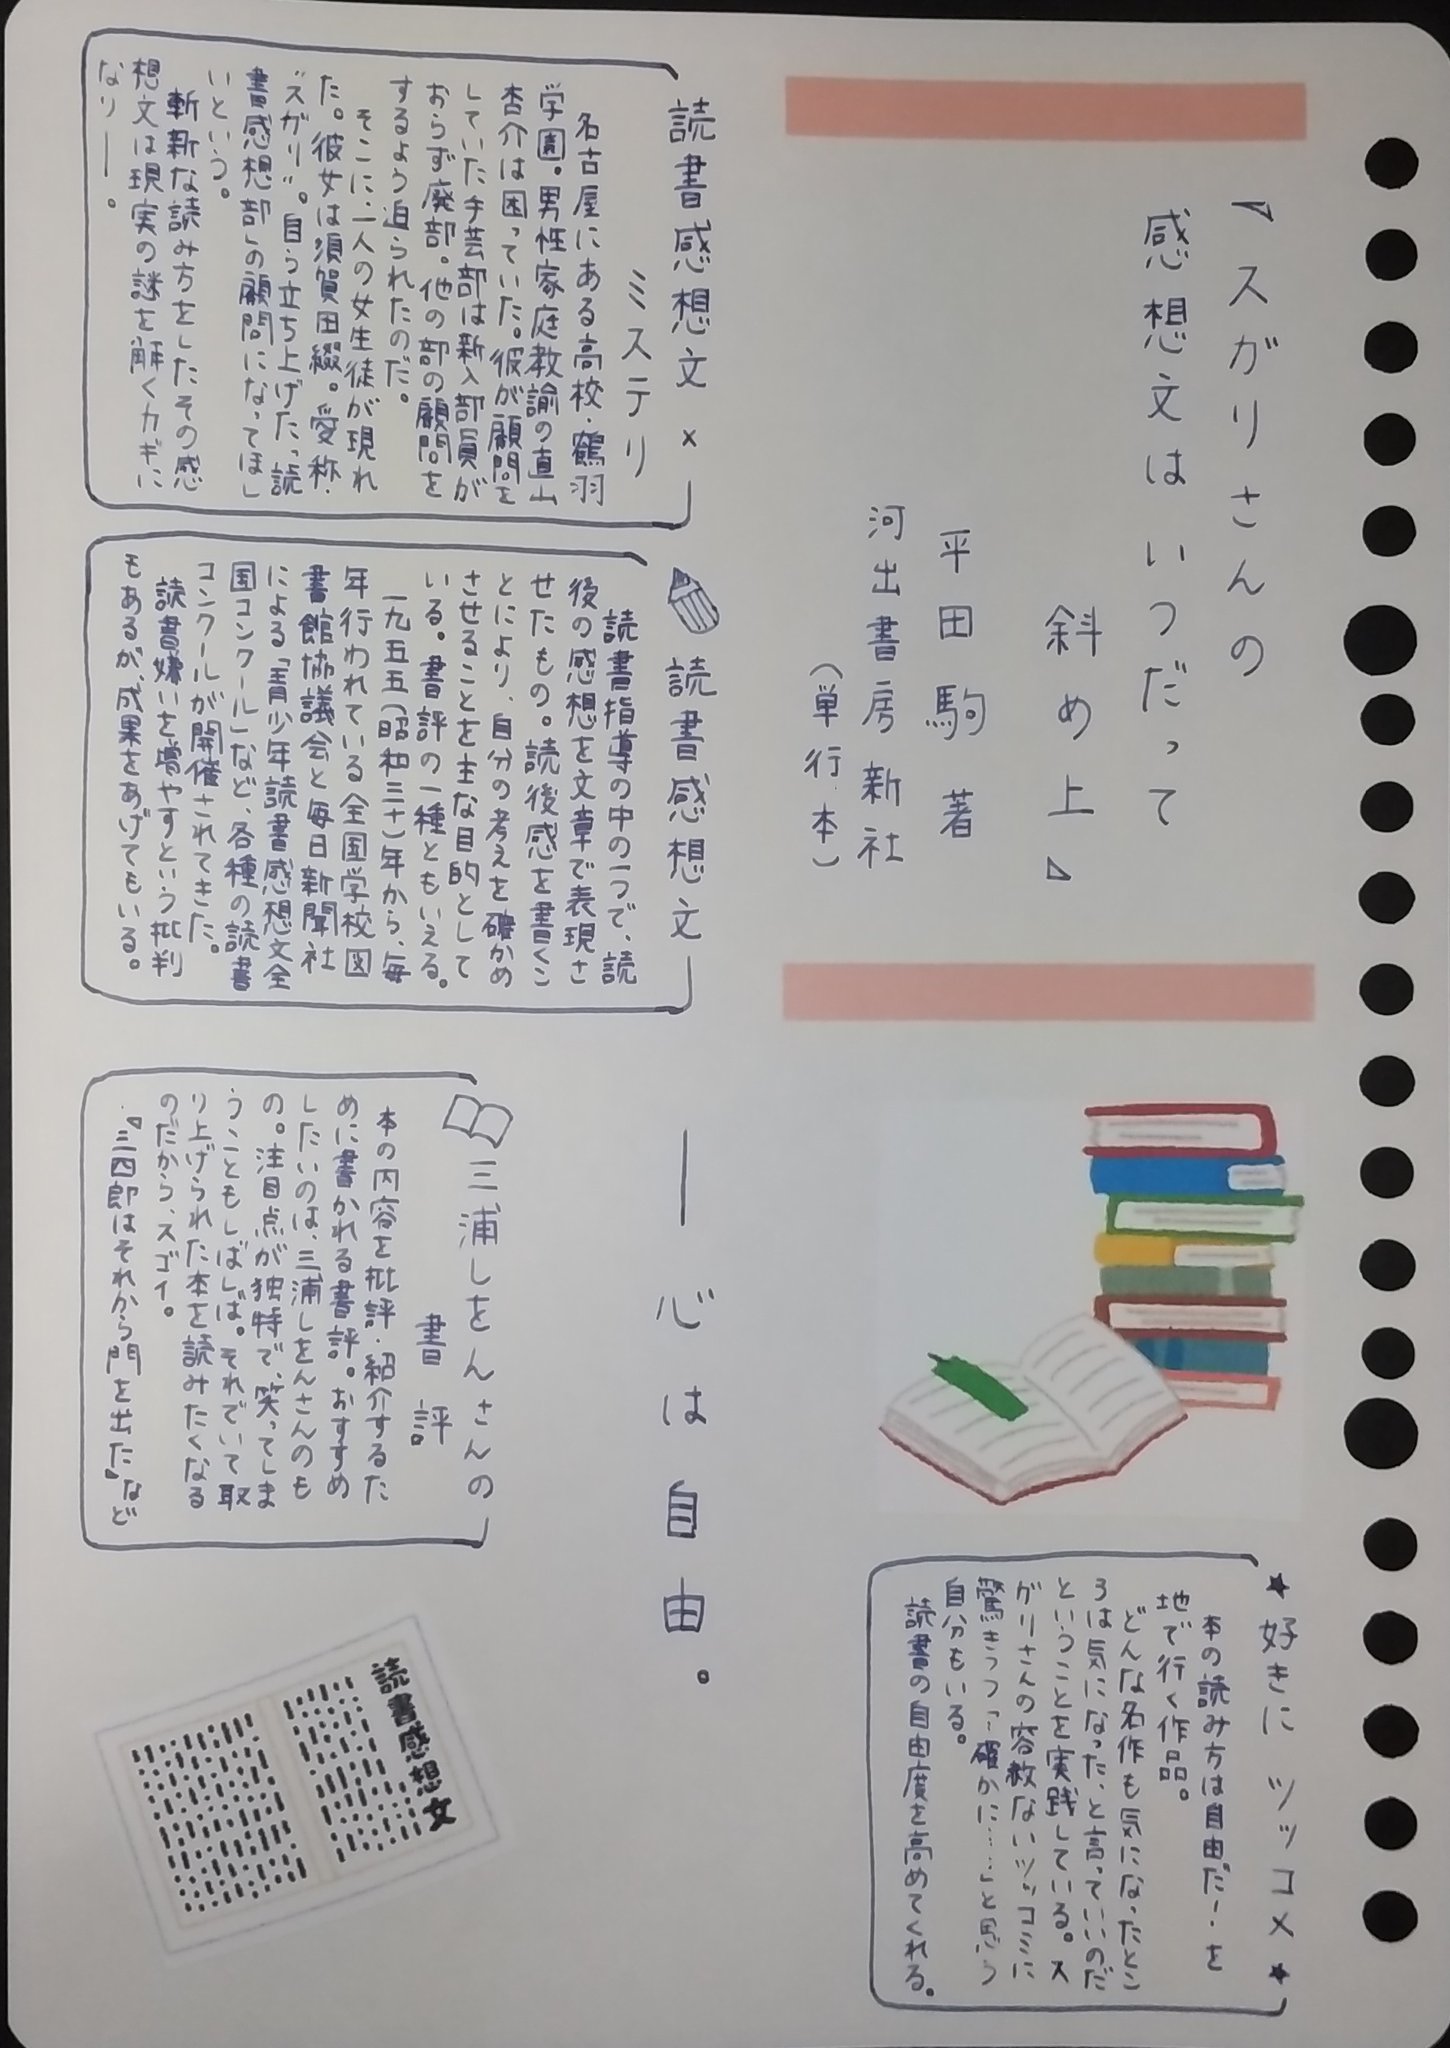 『スガリさんの
感想文はいつだって
斜め上』
平田駒 著
河出書房新社
（単行本）
読書感想文×
ミステリ
名古屋にある高校・鶴羽
学園。男性家庭教諭の直山
杏介は困っていた。彼が顧問を
していた手芸部は新入部員が
おらず廃部。他の部の顧問を
するよう迫られたのだ。
そこに、一人の女生徒が現れ
た。彼女は須賀田綴。愛称・
〝スガリ〟。自ら立ち上げた「読
書感想部」の顧問になってほし
いという。
斬新な読み方をしたその感
想文は現実の謎を解くカギに
なり―。
読書感想文
読書指導の中の一つで、読
後の感想を文章で表現さ
せたもの。読後感を書くこ
とにより、自分の考えを確かめ
させることを主な目的として
いる。書評の一種ともいえる。
一九五五（昭和三十）年から、毎
年行われている全国学校図
書館協議会と毎日新聞社
による「青少年読書感想文全
国コンクール」など、各種の読書
コンクールが開催されてきた。
読書嫌いを増やすという批判
もあるが、成果をあげてもいる。
★好きにツッコメ★
本の読み方は自由だー！を
地で行く作品。
どんな名作も気になったとこ
ろは気になった、と言っていいのだ
ということを実践している。ス
ガリさんの容赦ないツッコミに
驚きつつ「確かに……」と思う
自分もいる。
読書の自由度を高めてくれる。
―心は自由。
三浦しをんさんの
書評
本の内容を批評・紹介するた
めに書かれる書評。おすすめ
したいのは、三浦しをんさんのも
の。注目点が独特で、笑ってしま
うこともしばしば。それでいて取
り上げられた本を読みたくなる
のだから、スゴイ。
『三四郎はそれから門を出た』など
読書感想文